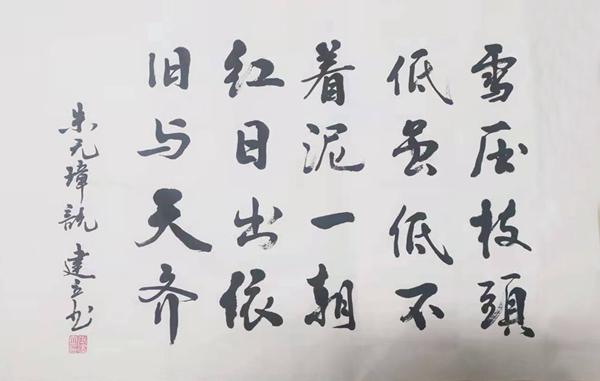 雪压枝頭
低虽低不
着泥一朝
红日出依
旧与天齐
朱元璋 建立书